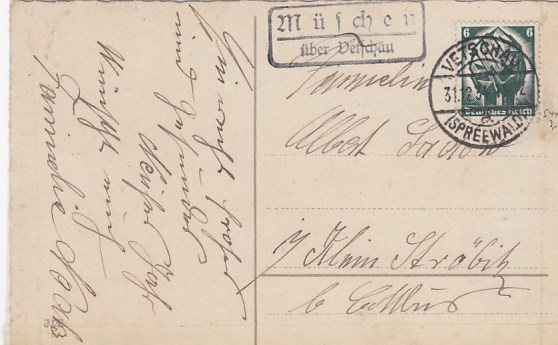 Müschen
über Vetschau
6 6
VETSCHAU
31.12.3
(SPREEWALD)
Deutsches Reich
Familie
Albert
i/ Klein Ströbitz
b Cottbus
Ein recht frohes
und gesundes
Neues Jahr
wünscht euch
Familie Noack